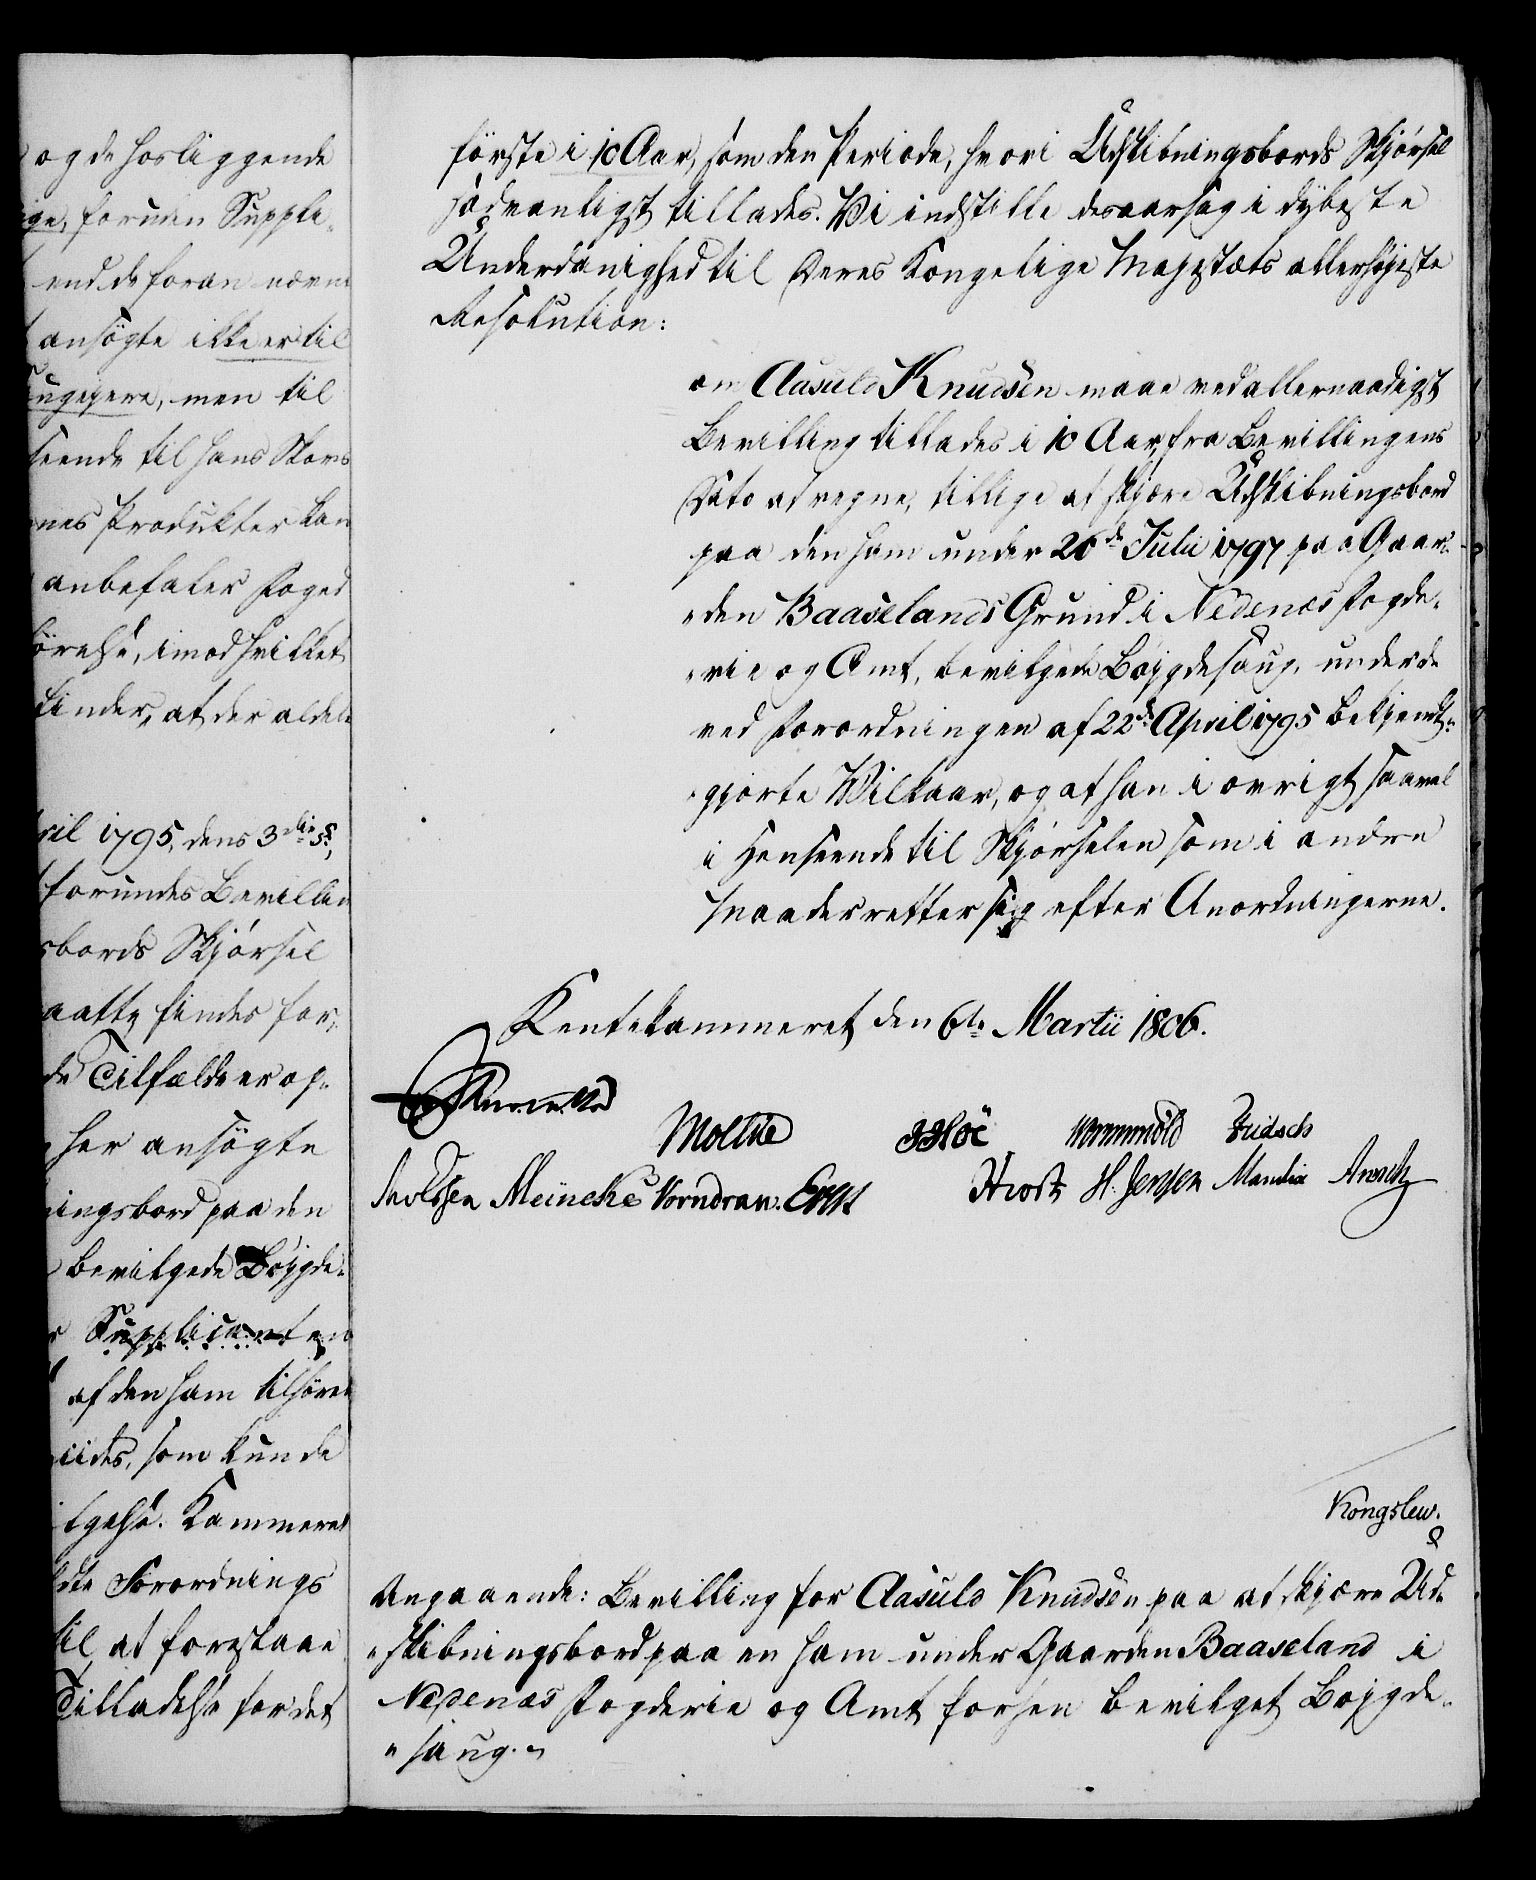 og de hosliggende
foruden Supple-
end de foran nævn
ansögte ikke er til
men til
seende til hans Skovs
nes Produkter kan
anbefaler Foged
imod hvilket
finder, at der aldel
ril 1795, dens 3die §,
forundes Bevilling
sbords Skjörsel
aatte findes for-
de Tilfælde er op-
her ansögte
ningsbord paa den
bevilgede Böjgde-
Supplicanten
af den ham tilhören
som kunde
Kammeret
Forordnings
til, at forestaae
Tilladelse for det
förste i 10 Aar, som den Periode, hvori Udskibningsbords Skjörsel
sædvanligst tillades. Vi indstille desaarsag i dybeste
Underdanighed til Deres Kongelige Majestæts allerhöjeste
Resolution:
om Aasuld Knudsen maae ved allernaadigst
Bevilling tillades i 10 Aar, fra Bevillingens
Dato at regne, tillige at skjære Udskibningsbord
paa den ham under 26de Julii 1797 paa Gaar-
den Baaselands Grund i Nedenæs Fogde-
rie og Amt, bevilgede Böjgdesaug, under de
ved Forordningen af 22de April 1795 bekjendt-
gjorte Vilkaar, og at han i övrigt saavel
i Henseende til Skjörselen som i andre
Maader retter sig efter Anordningerne.
Rentekammeret den 6te Martii 1806.
Moltke Wormskiold Fridsch
Meincke Vorndran. Horst H. Jensen
Kongslew.
Angaaende: Bevilling for Aasuld Knudsen paa at skjære Ud-
skibningsbord paa en ham under Gaarden Baaseland i
Nedenæs Fogderie og Amt forhen bevilget Böjgde-
saug.